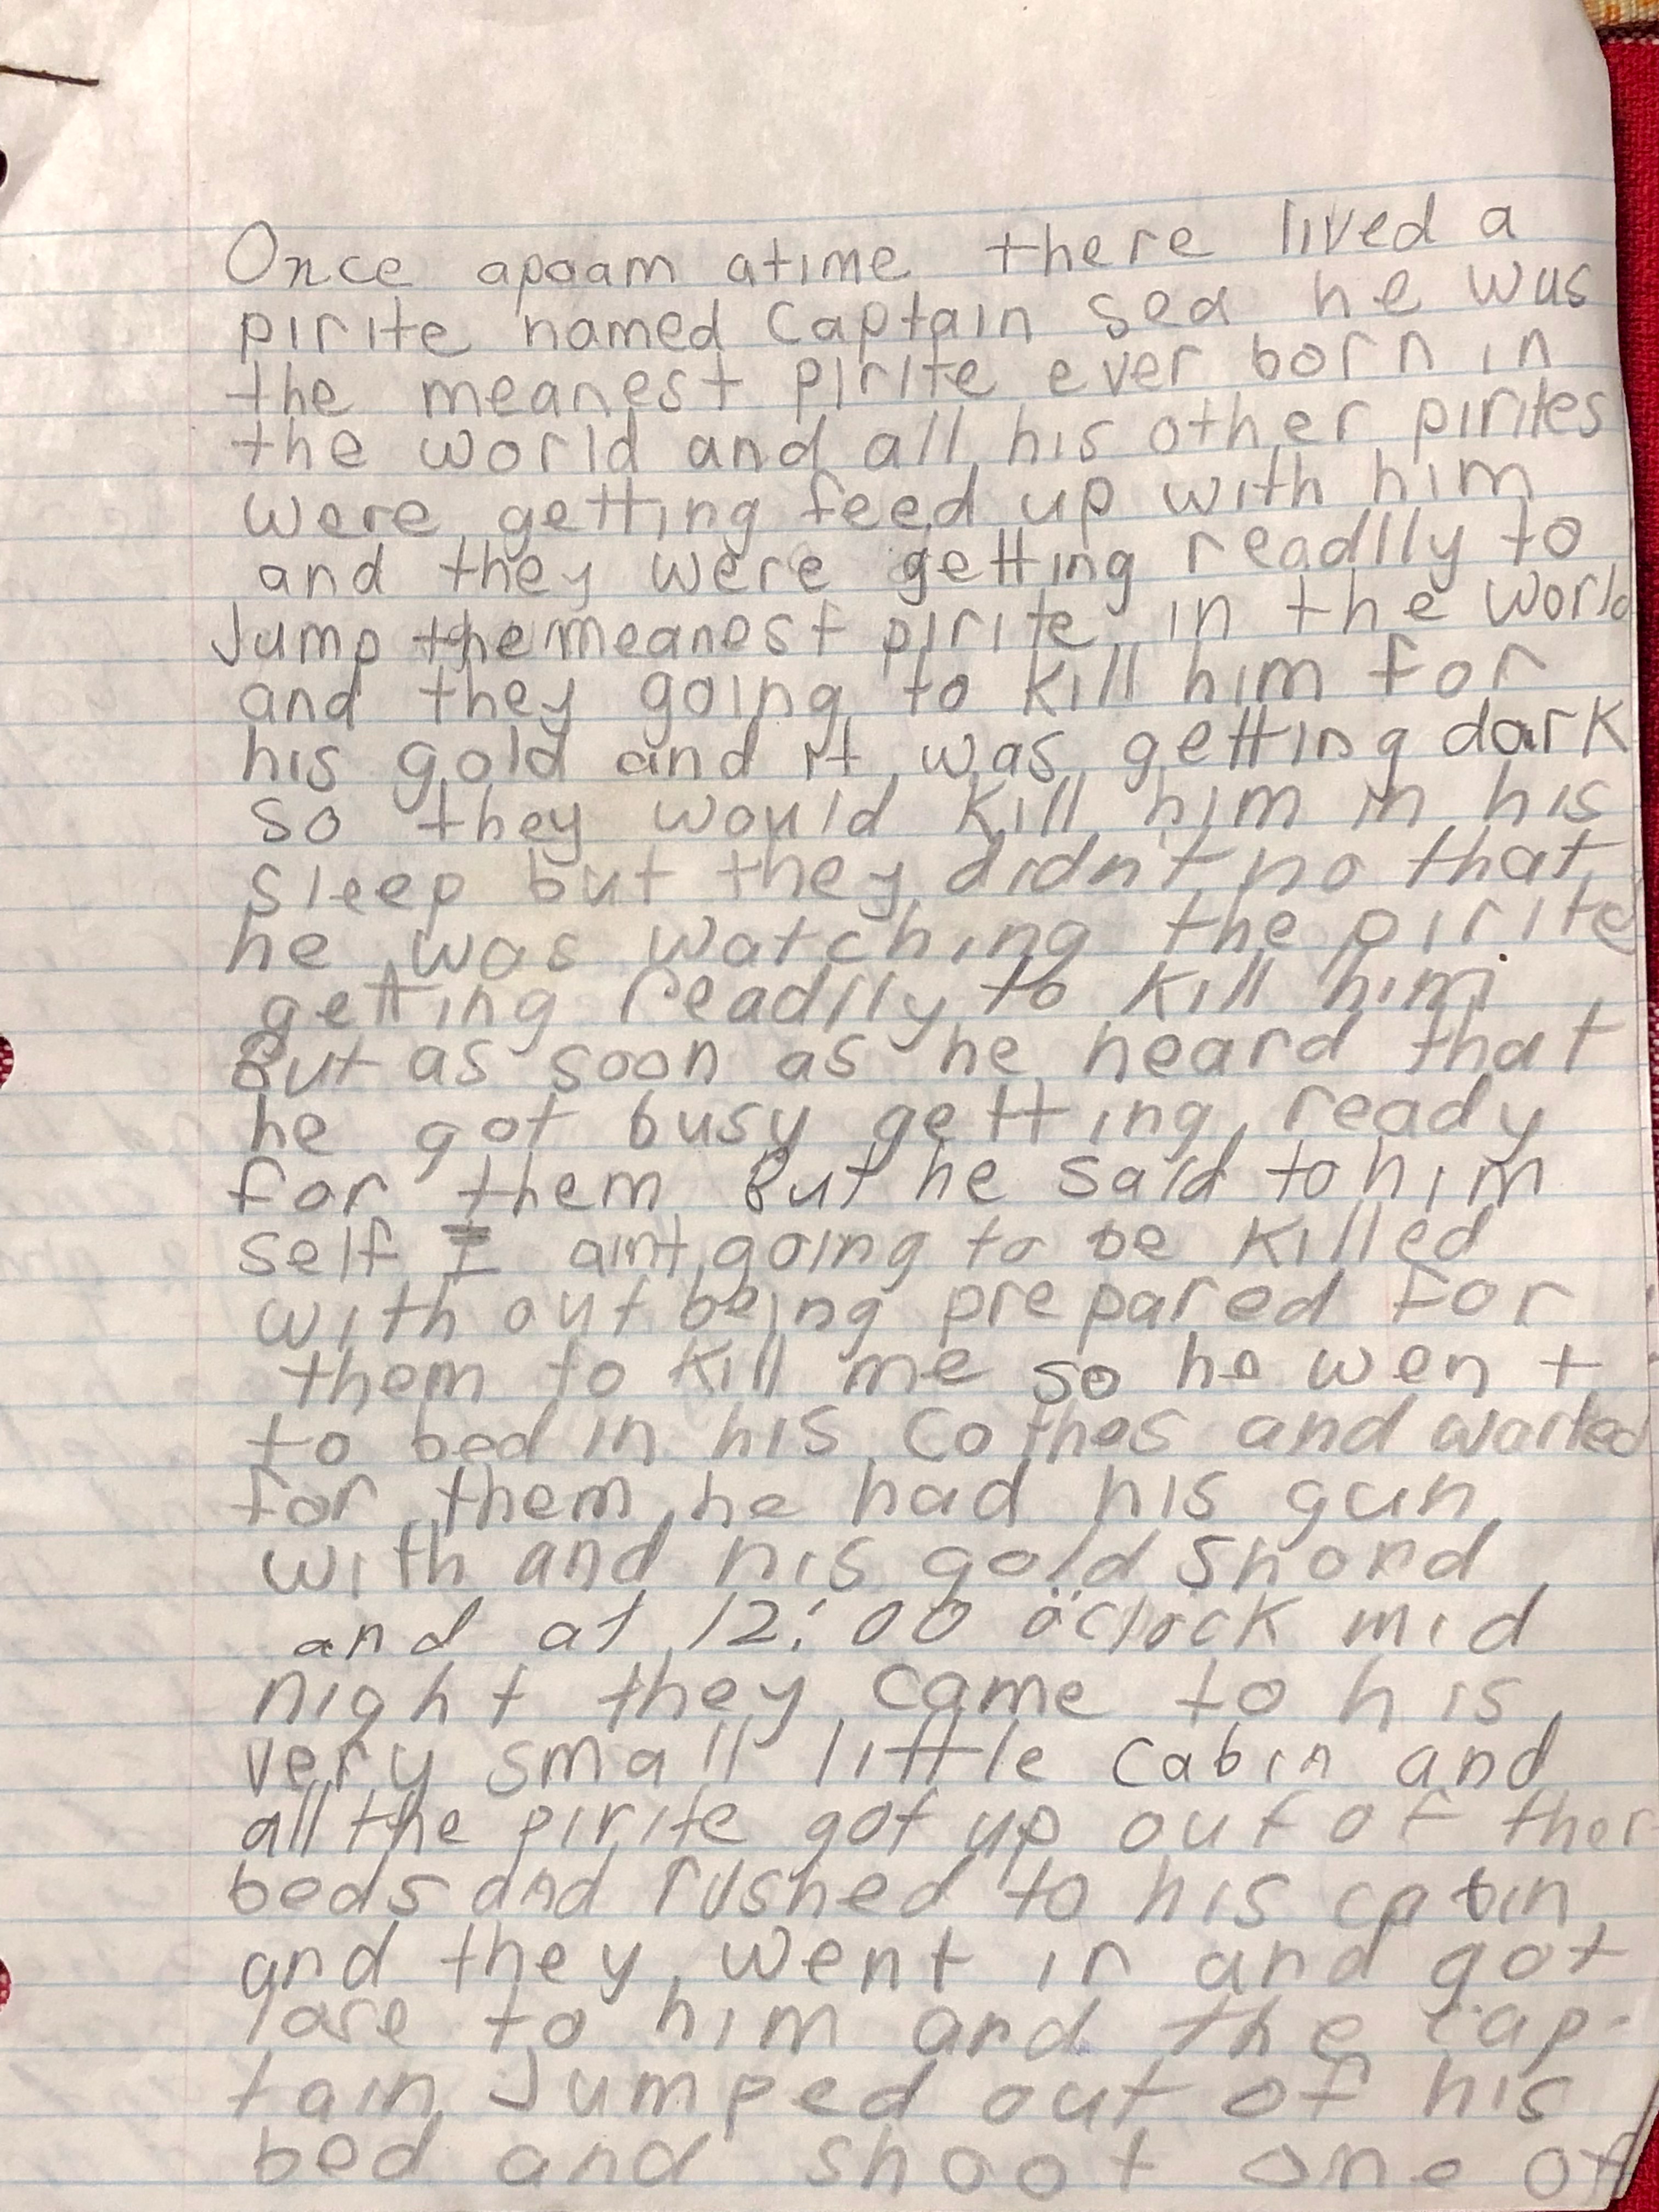 Once apoam atime there lived a
pirite named Captain Sea he was
the meanest pirite ever born in
the world and all his other pirites
were getting feed up with him
and they were getting readlly to
Jump the meanest pirite in the world
and they going to kill him for
his gold and it was getting dark
so they would kill him in his
sleep but they didn't no that
he was watching the pirite
getting readlly to kill him.
But as soon as he heard that
he got busy getting ready
for them But he said to him
self I aint going to be killed
with out being prepared for
them to kill me so he went
to bed in his Cothes and waited
for them he had his gun
with and his gold shord
and at 12:00 o'clock mid
night they came to his
very small little cabin and
all the pirite got up out of ther
beds and rushed to his cabin
and they went in and got
to him and the cap-
tain Jumped out of his
bed and shoot one of